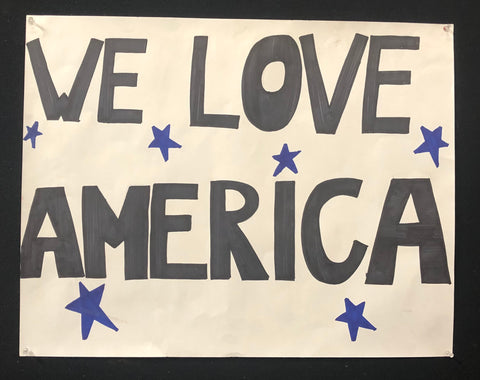 WE LOVE
AMERICA